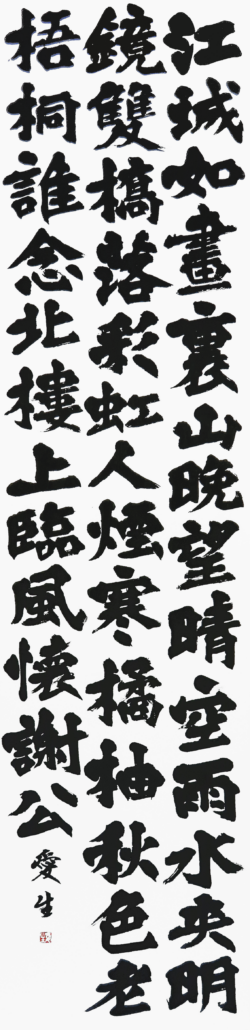 江城如畫裏山晚望晴空兩水夾明
鏡雙橋落彩虹人煙寒橘柚秋色老
梧桐誰念北樓上臨風懷謝公
愛生